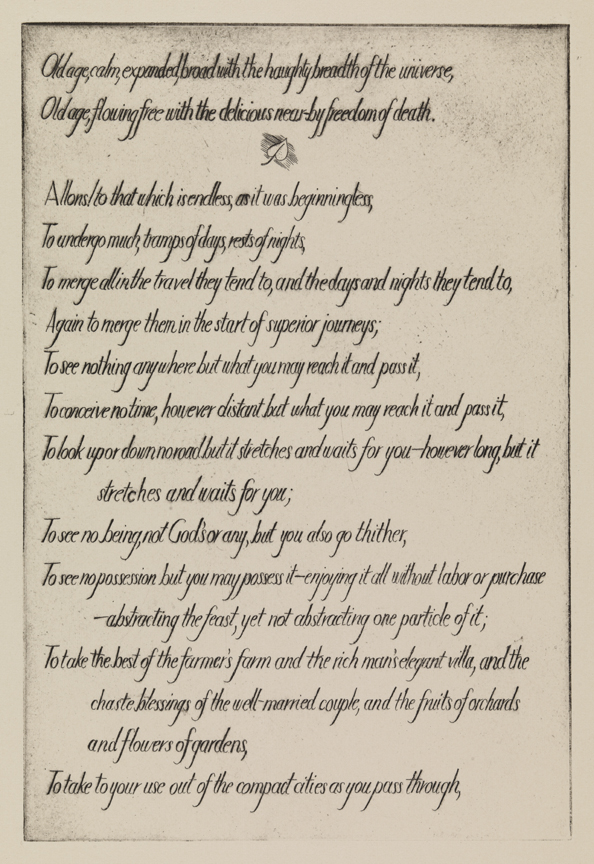 Old age, calm, expanded, broad with the haughty breadth of the universe,
Old age, flowing free with the delicious near-by freedom of death.
Allons! to that which is endless, as it was beginningless,
To undergo much, tramps of days, rests of nights,
To merge all in the travel they tend to, and the days and nights they tend to,
Again to merge them in the start of superior journeys;
To see nothing anywhere but what you may reach it and pass it,
To conceive no time, however distant but what you may reach it and pass it,
To look up or down no road but it stretches and waits for you—however long, but it
stretches and waits for you;
To see no being, not God's or any, but you also go thither,
To see no possession but you may possess it—enjoying it all without labor or purchase
—abstracting the feast, yet not abstracting one particle of it;
To take the best of the farmer's farm and the rich man's elegant villa, and the
chaste blessings of the well-married couple, and the fruits of orchards
and flowers of gardens,
To take to your use out of the compact cities as you pass through,